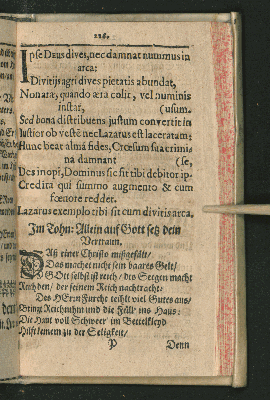 226.
Ipse Deus dives, nec damnat nummus in
arca:
Divitijs agri dives pietatis abundat,
Non aræ, quando æra colit, vel numinis
instar, (usum.
Sed bona distribuens justum convertit in
Iustior ob vestē nec Lazarus est laceratum:
Hunc beat alma fides, Crœsum sua crimi-
na damnant (se,
Des inopi, Dominus sic fit tibi debitor ip-
Credita qui summo augmento & cum
fœnore redder.
Lazarus exemplo tibi sit cum divitis arca.
Im Tohn: Allein auff Gott setz dein
Vertrawn.
OB einer Christo mißgefält/
Das machet nicht sein baares Gelt/
GOtt selbst ist reich/ des Seegen macht
Reich den/ der seinem Reich nachtracht:
Des HErrn Furcht theilt viel Gutes aus/
Bringt Reichthum und die Füll ins Haus:
Die Haut voll Schweer im Bettelkleyd
Hilfft niemen zu der Seligkeit/
P Denn